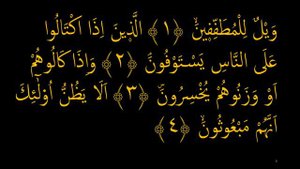 وَيْلٌ لِلْمُطَفِّفِينَۙ ﴿١﴾ الَّذِينَ اِذَا اكْتَالُوا
عَلَى النَّاسِ يَسْتَوْفُونَۘ ﴿٢﴾ وَاِذَا كَالُوهُمْ
اَوْ وَزَنُوهُمْ يُخْسِرُونَۜ ﴿٣﴾ اَلَا يَظُنُّ اُولٰٓئِكَ
اَنَّهُمْ مَبْعُوثُونَۙ ﴿٤﴾